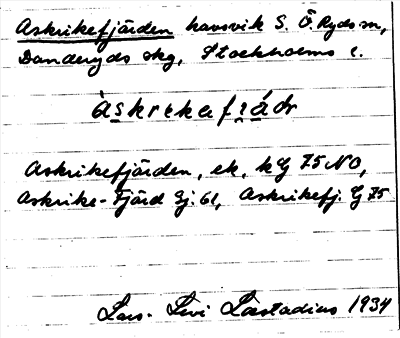 Askrikefjärden havsvik S. Ö. Ryds sn,
Danderyds skg, Stockholms l.
àskrikafjádr
Askrikefjärden, ek, kG 75 NO,
Askrike-Fjärd Sj. 61, Askrikefj. G 75
Lars-Levi Læstadius 1934